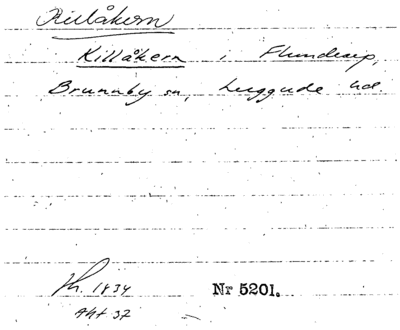 Killåkern
Killåkern i Flundrarp,
Brunnby sn, Luggude hd.
Kh. 1834 Nr 5201.
Akt 37